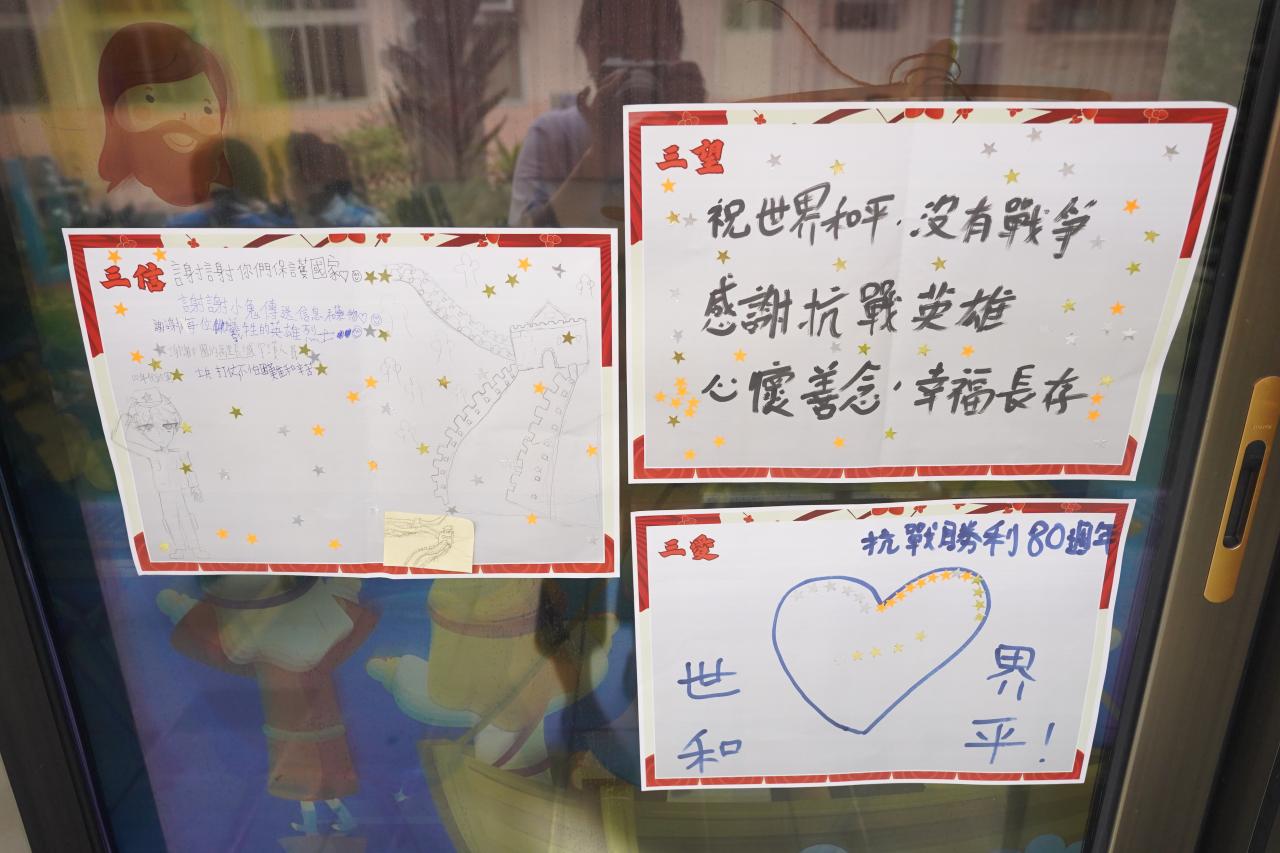 三信
謝謝你們保護國家
謝謝小鬼傳送信息
謝謝 犧牲的英雄烈士
士兵打仗不怕
三望
祝世界和平，沒有戰爭
感謝抗戰英雄
心懷善念，幸福長存
三愛
抗戰勝利80週年
世 界
和 平！